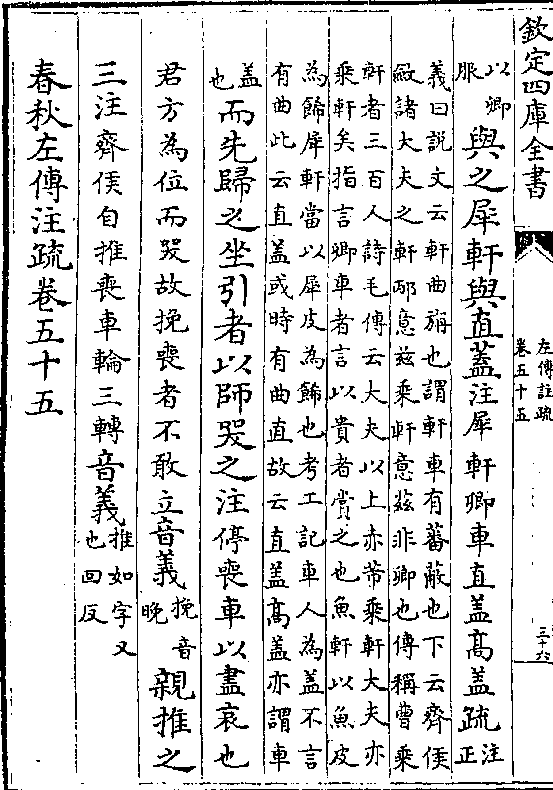 欽定四庫全書
左傳註疏
卷五十五
三十六
以卿
服
與之犀軒與直蓋注犀軒卿車直蓋高蓋疏
注
正
義曰說文云軒曲旃也謂軒車有蕃蔽也下云齊侯
斂諸大夫之軒邴意茲乘軒意茲非卿也傳稱曹乘
軒者三百人詩毛傳云大夫以上亦芾乘軒大夫亦
乘軒矣指言卿車者言以貴者賞之也魚軒以魚皮
為飾犀軒當以犀皮為飾也考工記車人為蓋不言
有曲此云直蓋或時有曲直故云直蓋高蓋亦謂車
蓋
也
而先歸之坐引者以師哭之注停喪車以盡哀也
君方為位而哭故挽喪者不敢立音義
挽音
晚
親推之
三注齊侯自推喪車輪三轉音義
推如字又
也回反
春秋左傳注疏卷五十五